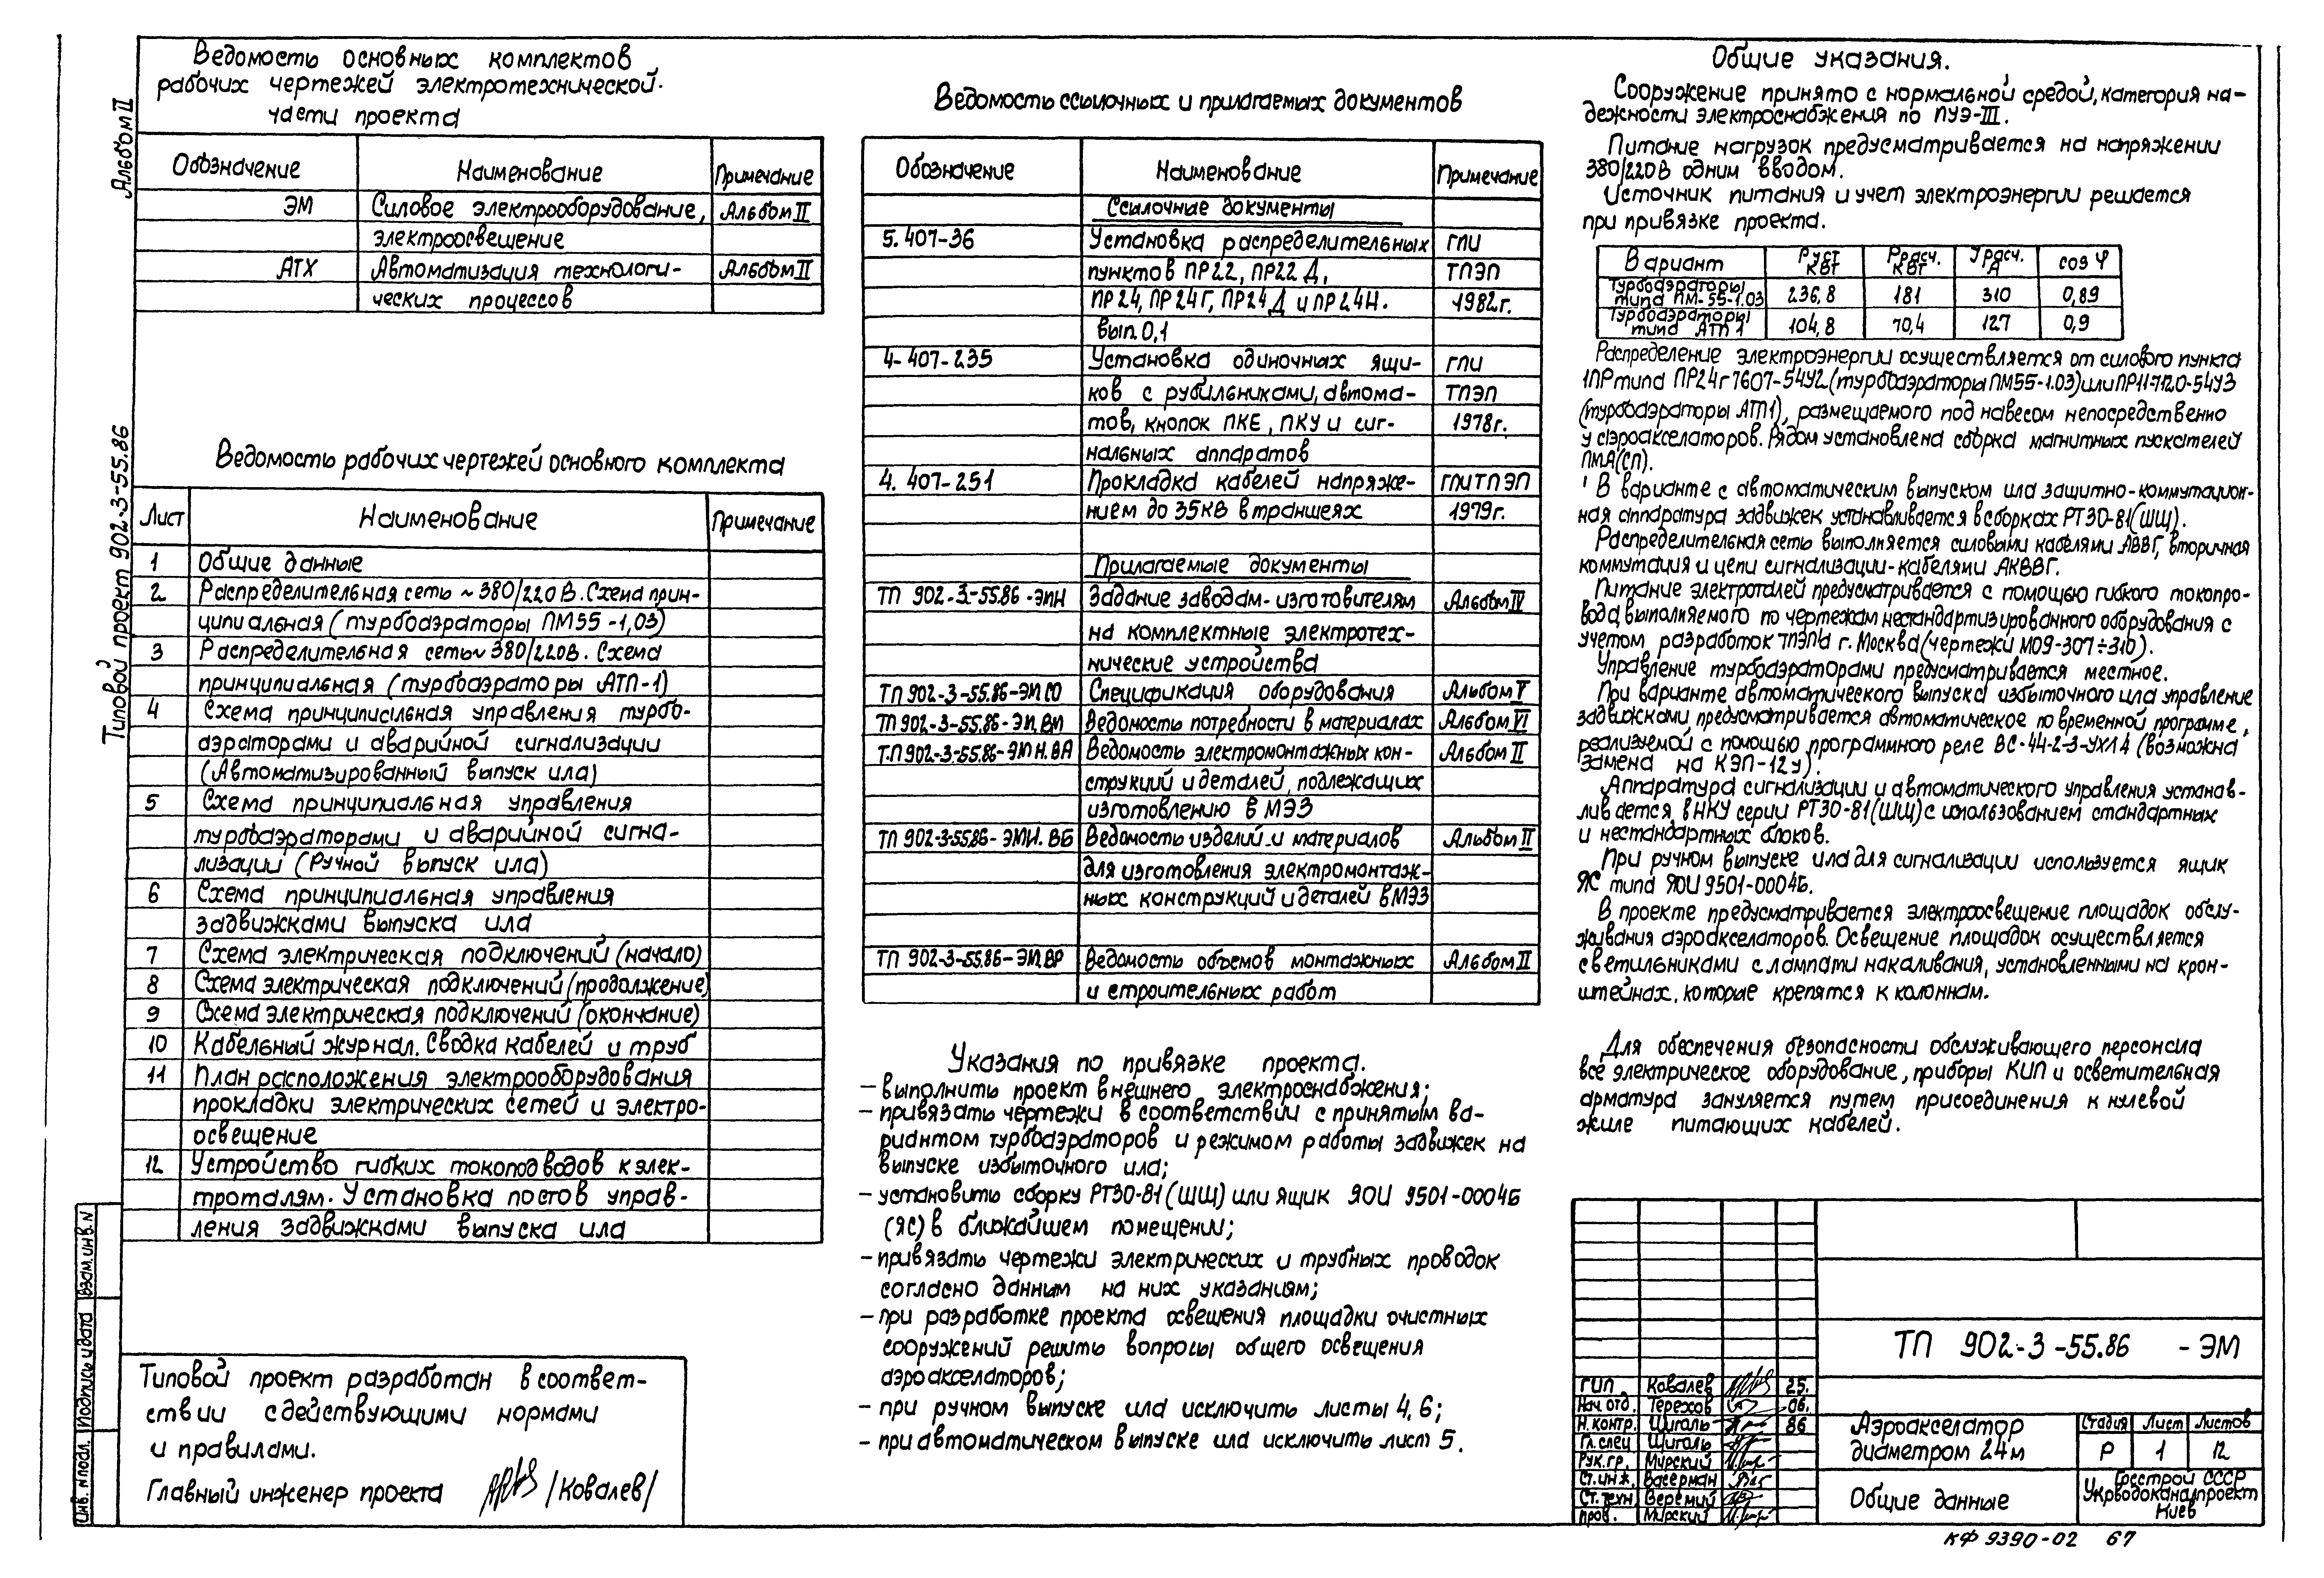 Альбом II
Типовой проект 902-3-55.86
Ведомость основных комплектов
рабочих чертежей электротехнической
части проекта
Обозначение Наименование Примечание
ЭМ Силовое электрооборудование, Альбом II
электроосвещение
АТХ Автоматизация технологи- Альбом II
ческих процессов
Ведомость рабочих чертежей основного комплекта
Лист Наименование Примечание
1 Общие данные
2 Распределительная сеть ~380/220В. Схема прин-
ципиальная (турбоаэраторы ПМ55-1,03)
3 Распределительная сеть ~380/220В. Схема
принципиальная (турбоаэраторы АТП-1)
4 Схема принципиальная управления турбо-
аэраторами и аварийной сигнализации
(Автоматизированный выпуск ила)
5 Схема принципиальная управления
турбоаэраторами и аварийной сигна-
лизации (Ручной выпуск ила)
6 Схема принципиальная управления
задвижками выпуска ила
7 Схема электрическая подключений (начало)
8 Схема электрическая подключений (продолжение)
9 Схема электрическая подключений (окончание)
10 Кабельный журнал. Сводка кабелей и труб
11 План расположения электрооборудования
прокладки электрических сетей и электро-
освещение
12 Устройство гибких токоподводов к элек-
троталям. Установка постов управ-
ления задвижками выпуска ила
Типовой проект разработан в соответ-
ствии с действующими нормами
и правилами.
Главный инженер проекта /Ковалев/
Инв. N подл. Подпись и дата Взам. инв. N
Ведомость ссылочных и прилагаемых документов
Обозначение Наименование Примечание
Ссылочные документы
5. 407-36 Установка распределительных ГПИ
пунктов ПР22, ПР22 Д, ТПЭП
ПР24, ПР24Г, ПР24 Д и ПР24Н. 1982г.
вып. 0,1
4-407-235 Установка одиночных ящи- ГПИ
ков с рубильниками, автома- ТПЭП
тов, кнопок ПКЕ, ПКУ и сиг- 1978г.
нальных аппаратов
4. 407-251 Прокладка кабелей напряже- ГПИТПЭП
нием до 35кВ в траншеях 1979г.
Прилагаемые документы
ТП 902-3-55.86-ЭМН Задание заводам-изготовителям Альбом IV
на комплектные электротех-
нические устройства
ТП 902-3-55.86-ЭМ.СО Спецификация оборудования Альбом V
ТП 902-3-55.86-ЭМ.ВМ Ведомость потребности в материалах Альбом VI
Т.П 902-3-55.86-ЭМ Н.ВА Ведомость электромонтажных кон- Альбом II
струкций и деталей, подлежащих
изготовлению в МЭЗ
ТП 902-3-55.86-ЭМИ.ВБ Ведомость изделий и материалов Альбом II
для изготовления электромонтаж-
ных конструкций и деталей в МЭЗ
ТП 902-3-55.86-ЭМ.ВР Ведомость объемов монтажных Альбом II
и строительных работ
Указания по привязке проекта.
- выполнить проект внешнего электроснабжения;
- привязать чертежи в соответствии с принятым ва-
риантом турбоаэраторов и режимом работы задвижек на
выпуске избыточного ила;
- установить сборку РТ30-81 (ШЩ) или ящик ЯОИ 9501-0004Б
(ЯС) в ближайшем помещении;
- привязать чертежи электрических и трубных проводок
согласно данным на них указаниям;
- при разработке проекта освещения площадки очистных
сооружений решить вопросы общего освещения
аэроакселаторов;
- при ручном выпуске ила исключить листы 4, 6;
- при автоматическом выпуске ила исключить лист 5.
Общие указания.
Сооружение принято с нормальной средой, категория на-
дежности электроснабжения по ПУЭ-III.
Питание нагрузок предусматривается на напряжении
380/220В одним вводом.
Источник питания и учет электроэнергии решается
при привязке проекта.
Вариант Руст кВт Ррасч. кВт Iрасч. А cos φ
Турбоаэраторы типа ПМ-55-1.03 236,8 181 310 0,89
Турбоаэраторы типа АТП 1 104,8 70,4 127 0,9
Распределение электроэнергии осуществляется от силового пункта
1ПР типа ПР24г7607-54У2 (турбоаэраторы ПМ55-1.03) или ПР11-7120-54У3
(турбоаэраторы АТП1), размещаемого под навесом непосредственно
у аэроакселаторов. Рядом установлена сборка магнитных пускателей
ПМА(СП).
В варианте с автоматическим выпуском ила защитно-коммутацион-
ная аппаратура задвижек устанавливается в сборках РТ30-81(ШЩ).
Распределительная сеть выполняется силовыми кабелями АВВГ, вторичная
коммутация и цепи сигнализации-кабелями АКВВГ.
Питание электроталей предусматривается с помощью гибкого токопро-
вода, выполняемого по чертежам нестандартизированного оборудования с
учетом разработок ТПЭПа г. Москва (чертежи М09-307÷310).
Управление турбоаэраторами предусматривается местное.
При варианте автоматического выпуска избыточного ила управление
задвижками предусматривается автоматическое по временной программе,
реализуемой с помощью программного реле ВС-44-2-3-УХЛ4 (возможна
замена на КЭП-12У).
Аппаратура сигнализации и автоматического управления устанав-
ливается в НКУ серии РТ30-81(ШЩ) с использованием стандартных
и нестандартных блоков.
При ручном выпуске ила для сигнализации используется ящик
ЯС типа ЯОИ 9501-0004Б.
В проекте предусматривается электроосвещение площадок обслу-
живания аэроакселаторов. Освещение площадок осуществляется
светильниками с лампати накаливания, установленными на крон-
штейнах, которые крепятся к колоннам.
Для обеспечения безопасности обслуживающего персонала
все электрическое оборудование, приборы КИП и осветительная
арматура зануляется путем присоединения к нулевой
жиле питающих кабелей.
ТП 902-3-55.86 -ЭМ
ГИП Ковалев 25.
Нач. отд. Терехов 06.
Н. контр. Щиголь 86
Гл. спец Щиголь
Рук. гр. Мирский
Ст. инж. Васерман
Ст. техн. Веремий
Пров. Мирский
Аэроакселатор
диаметром 24м
Стадия Лист Листов
Р 1 12
Общие данные
Госстрой СССР
Укрводоканалпроект
Киев
КФ 9390-02 67